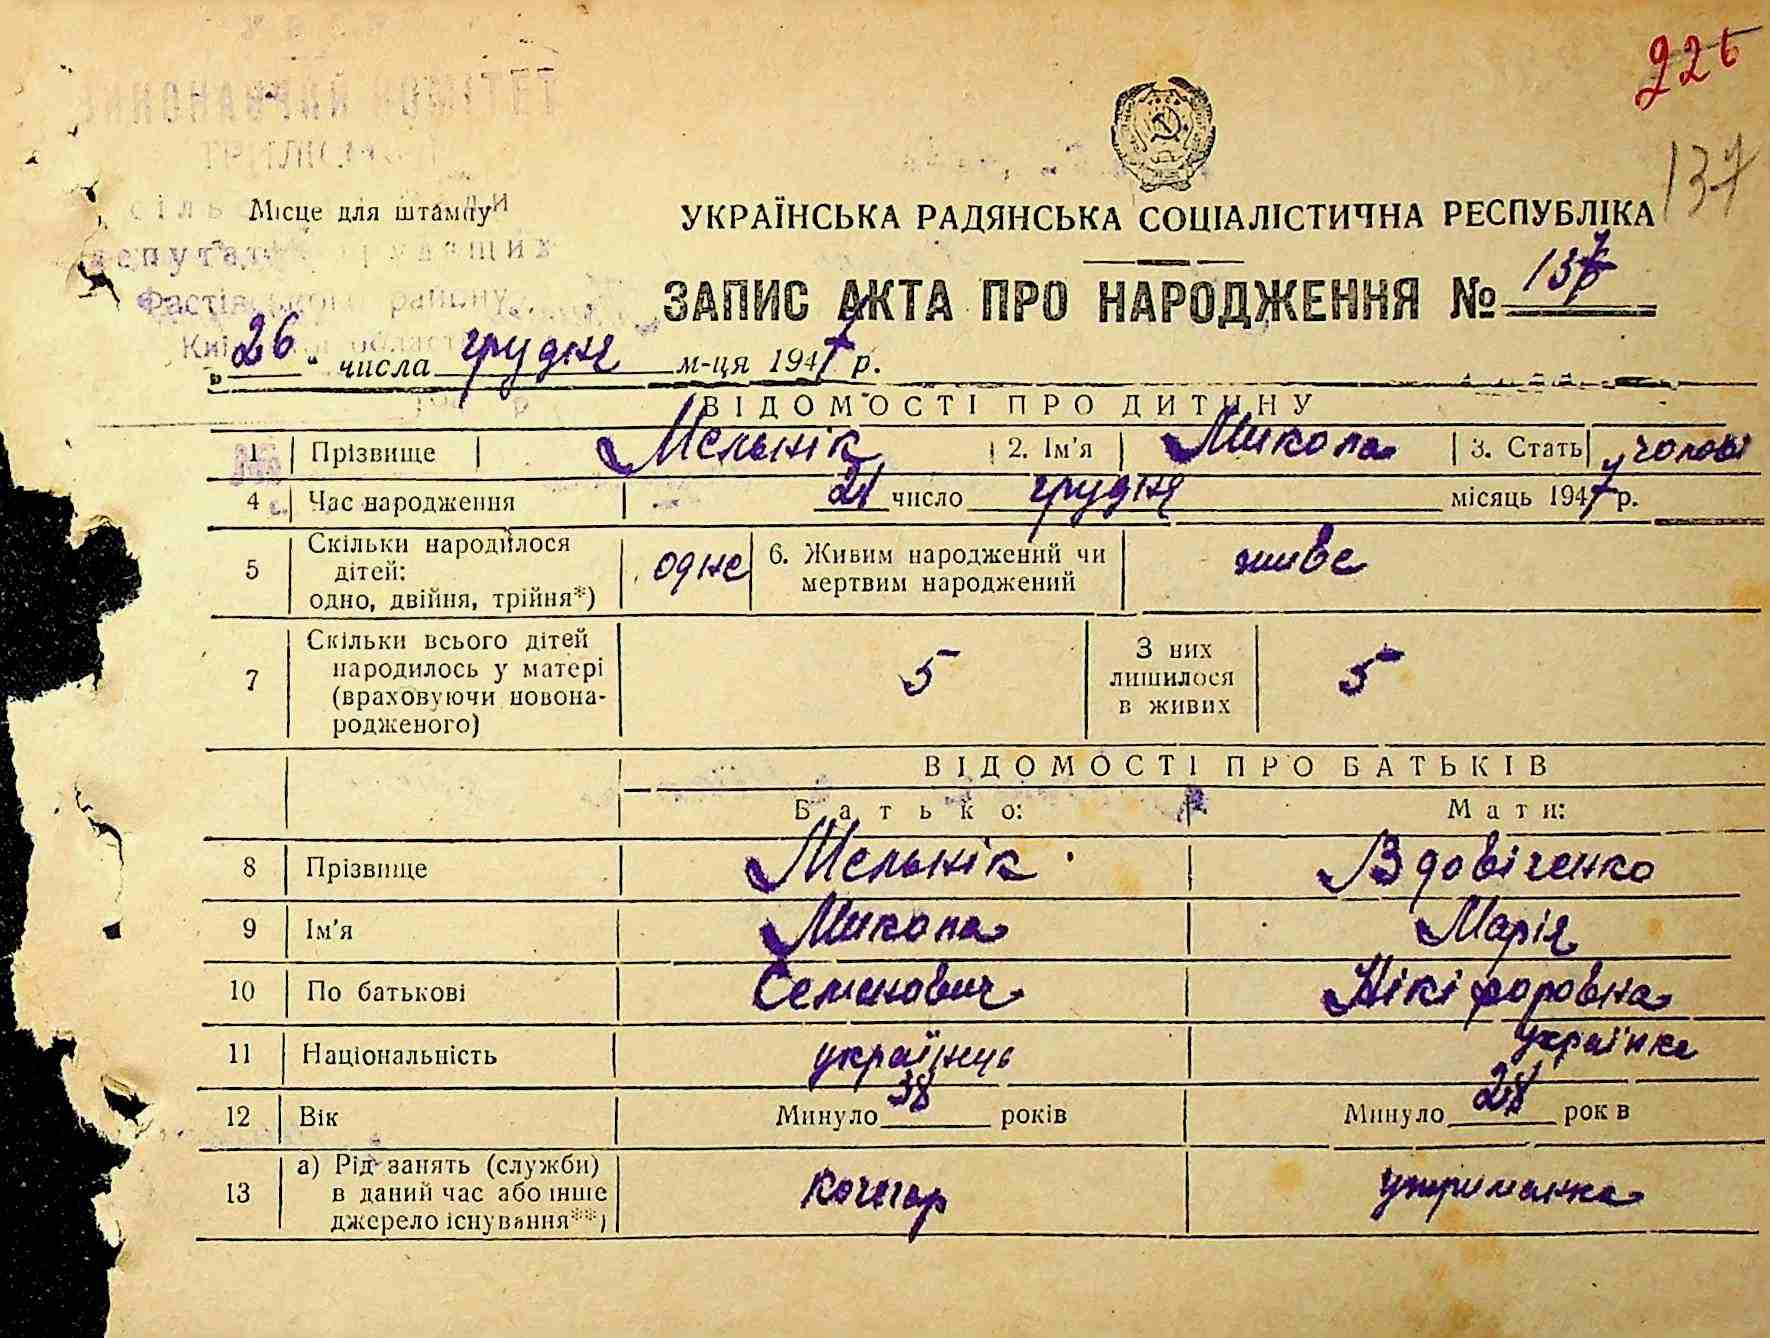 226
137
Місце для штампу
депутатів трудящих
Фастівського району
Київської області
УКРАЇНСЬКА РАДЯНСЬКА СОЦІАЛІСТИЧНА РЕСПУБЛІКА
ЗАПИС АКТА ПРО НАРОДЖЕННЯ № 137
„26" числа грудня м-ця 1947 р.
ВІДОМОСТІ ПРО ДИТИНУ
1 Прізвище Мельнік 2. Ім'я Микола 3. Стать чолові
4 Час народження 21 число грудня місяць 1947 р.
5 Скільки народилося
дітей:
одно, двійня, трійня*)
одне
6. Живим народжений чи
мертвим народжений
живе
7 Скільки всього дітей
народилось у матері
(враховуючи новона-
родженого)
5
З них
лишилося
в живих
5
ВІДОМОСТІ ПРО БАТЬКІВ
Батько: Мати:
8 Прізвище Мельнік Вдовіченко
9 Ім'я Микола Марія
10 По батькові Семенович Нікіфоровна
11 Національність українець українка
12 Вік Минуло 38 років Минуло 28 рок в
13 а) Рід занять (служби)
в даний час або інше
джерело існування**)
кочегар утриманка